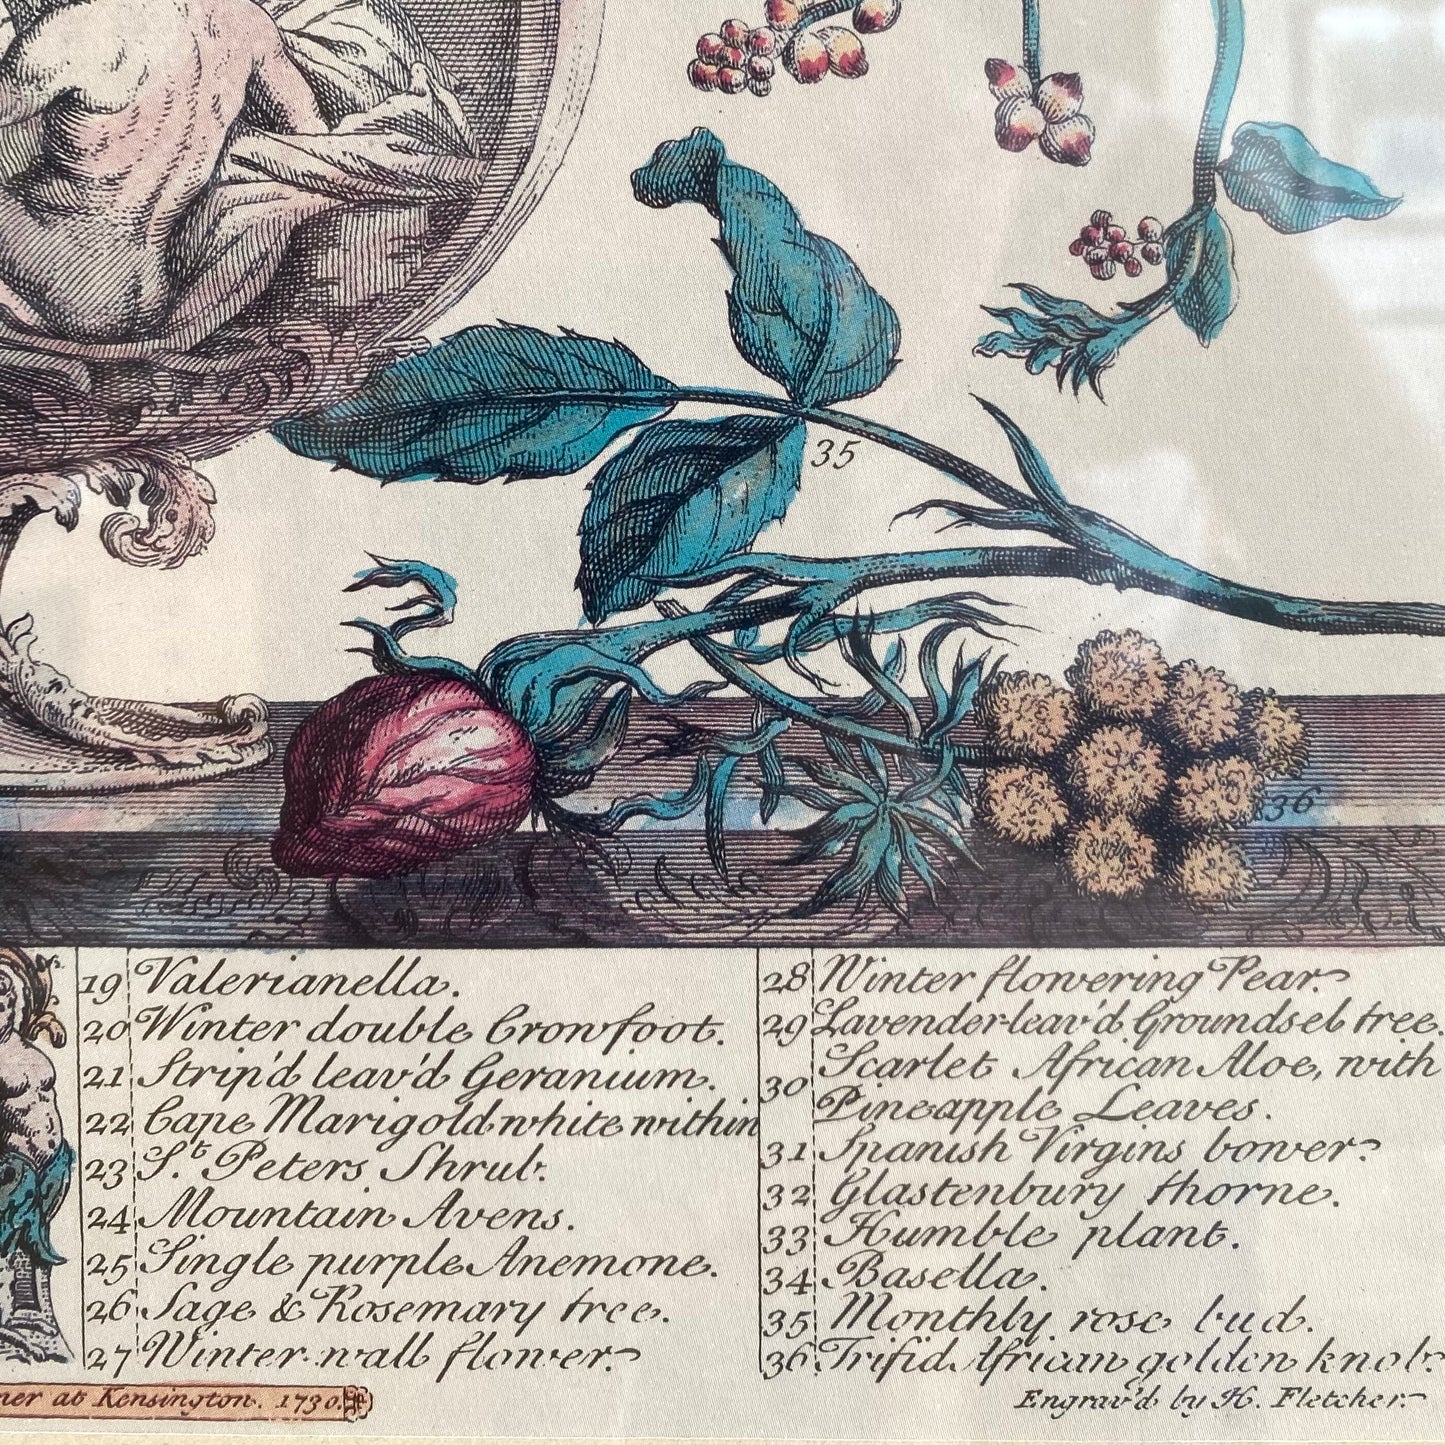 35
36
19 Valerianella.
20 Winter double Crowfoot.
21 Strip'd leav'd Geranium.
22 Cape Marigold white within
23 St Peters Shrub.
24 Mountain Avens.
25 Single purple Anemone.
26 Sage & Rosemary tree.
27 Winter wall flower.
28 Winter flowering Pear.
29 Lavender leav'd Groundsel tree.
30 Scarlet African Aloe, with
Pineapple Leaves.
31 Spanish Virgins bower.
32 Glastenbury thorne.
33 Humble plant.
34 Basella.
35 Monthly rose bud.
36 Trifid African golden knob.
ner at Kensington. 1730.
Engrav'd by H. Fletcher.